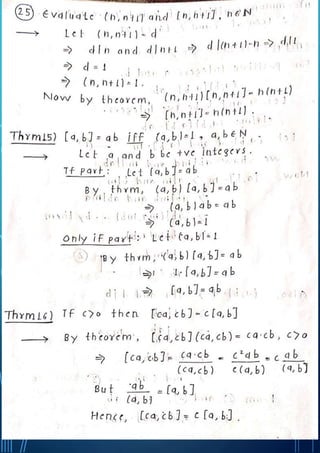 25) Evaluate (n, n+1) and [n, n+1], n∈N
→ Let (n, n+1) = d
⇒ d|n and d|n+1 ⇒ d|(n+1)-n ⇒ d|1
⇒ d = 1
⇒ (n, n+1) = 1.
Now by theorem, (n, n+1)[n, n+1] = n(n+1)
⇒ [n, n+1] = n(n+1).
Thrm15) [a, b] = ab iff (a, b) = 1, a, b ∈ N.
→ Let a and b be +ve integers.
If part: Let [a, b] = ab
By thrm, (a, b) [a, b] = ab
⇒ (a, b) ab = ab
⇒ (a, b) = 1
Only if part: Let (a, b) = 1
By thrm, (a, b) [a, b] = ab
⇒ 1·[a, b] = ab
⇒ [a, b] = ab
Thrm16) If c>0 then [ca, cb] = c[a, b]
→ By theorem, [ca, cb] (ca, cb) = ca·cb, c>0
⇒ [ca, cb] = ca·cb / (ca, cb) = c²ab / c(a, b) = c ab / (a, b)
But ab / (a, b) = [a, b]
Hence, [ca, cb] = c [a, b].